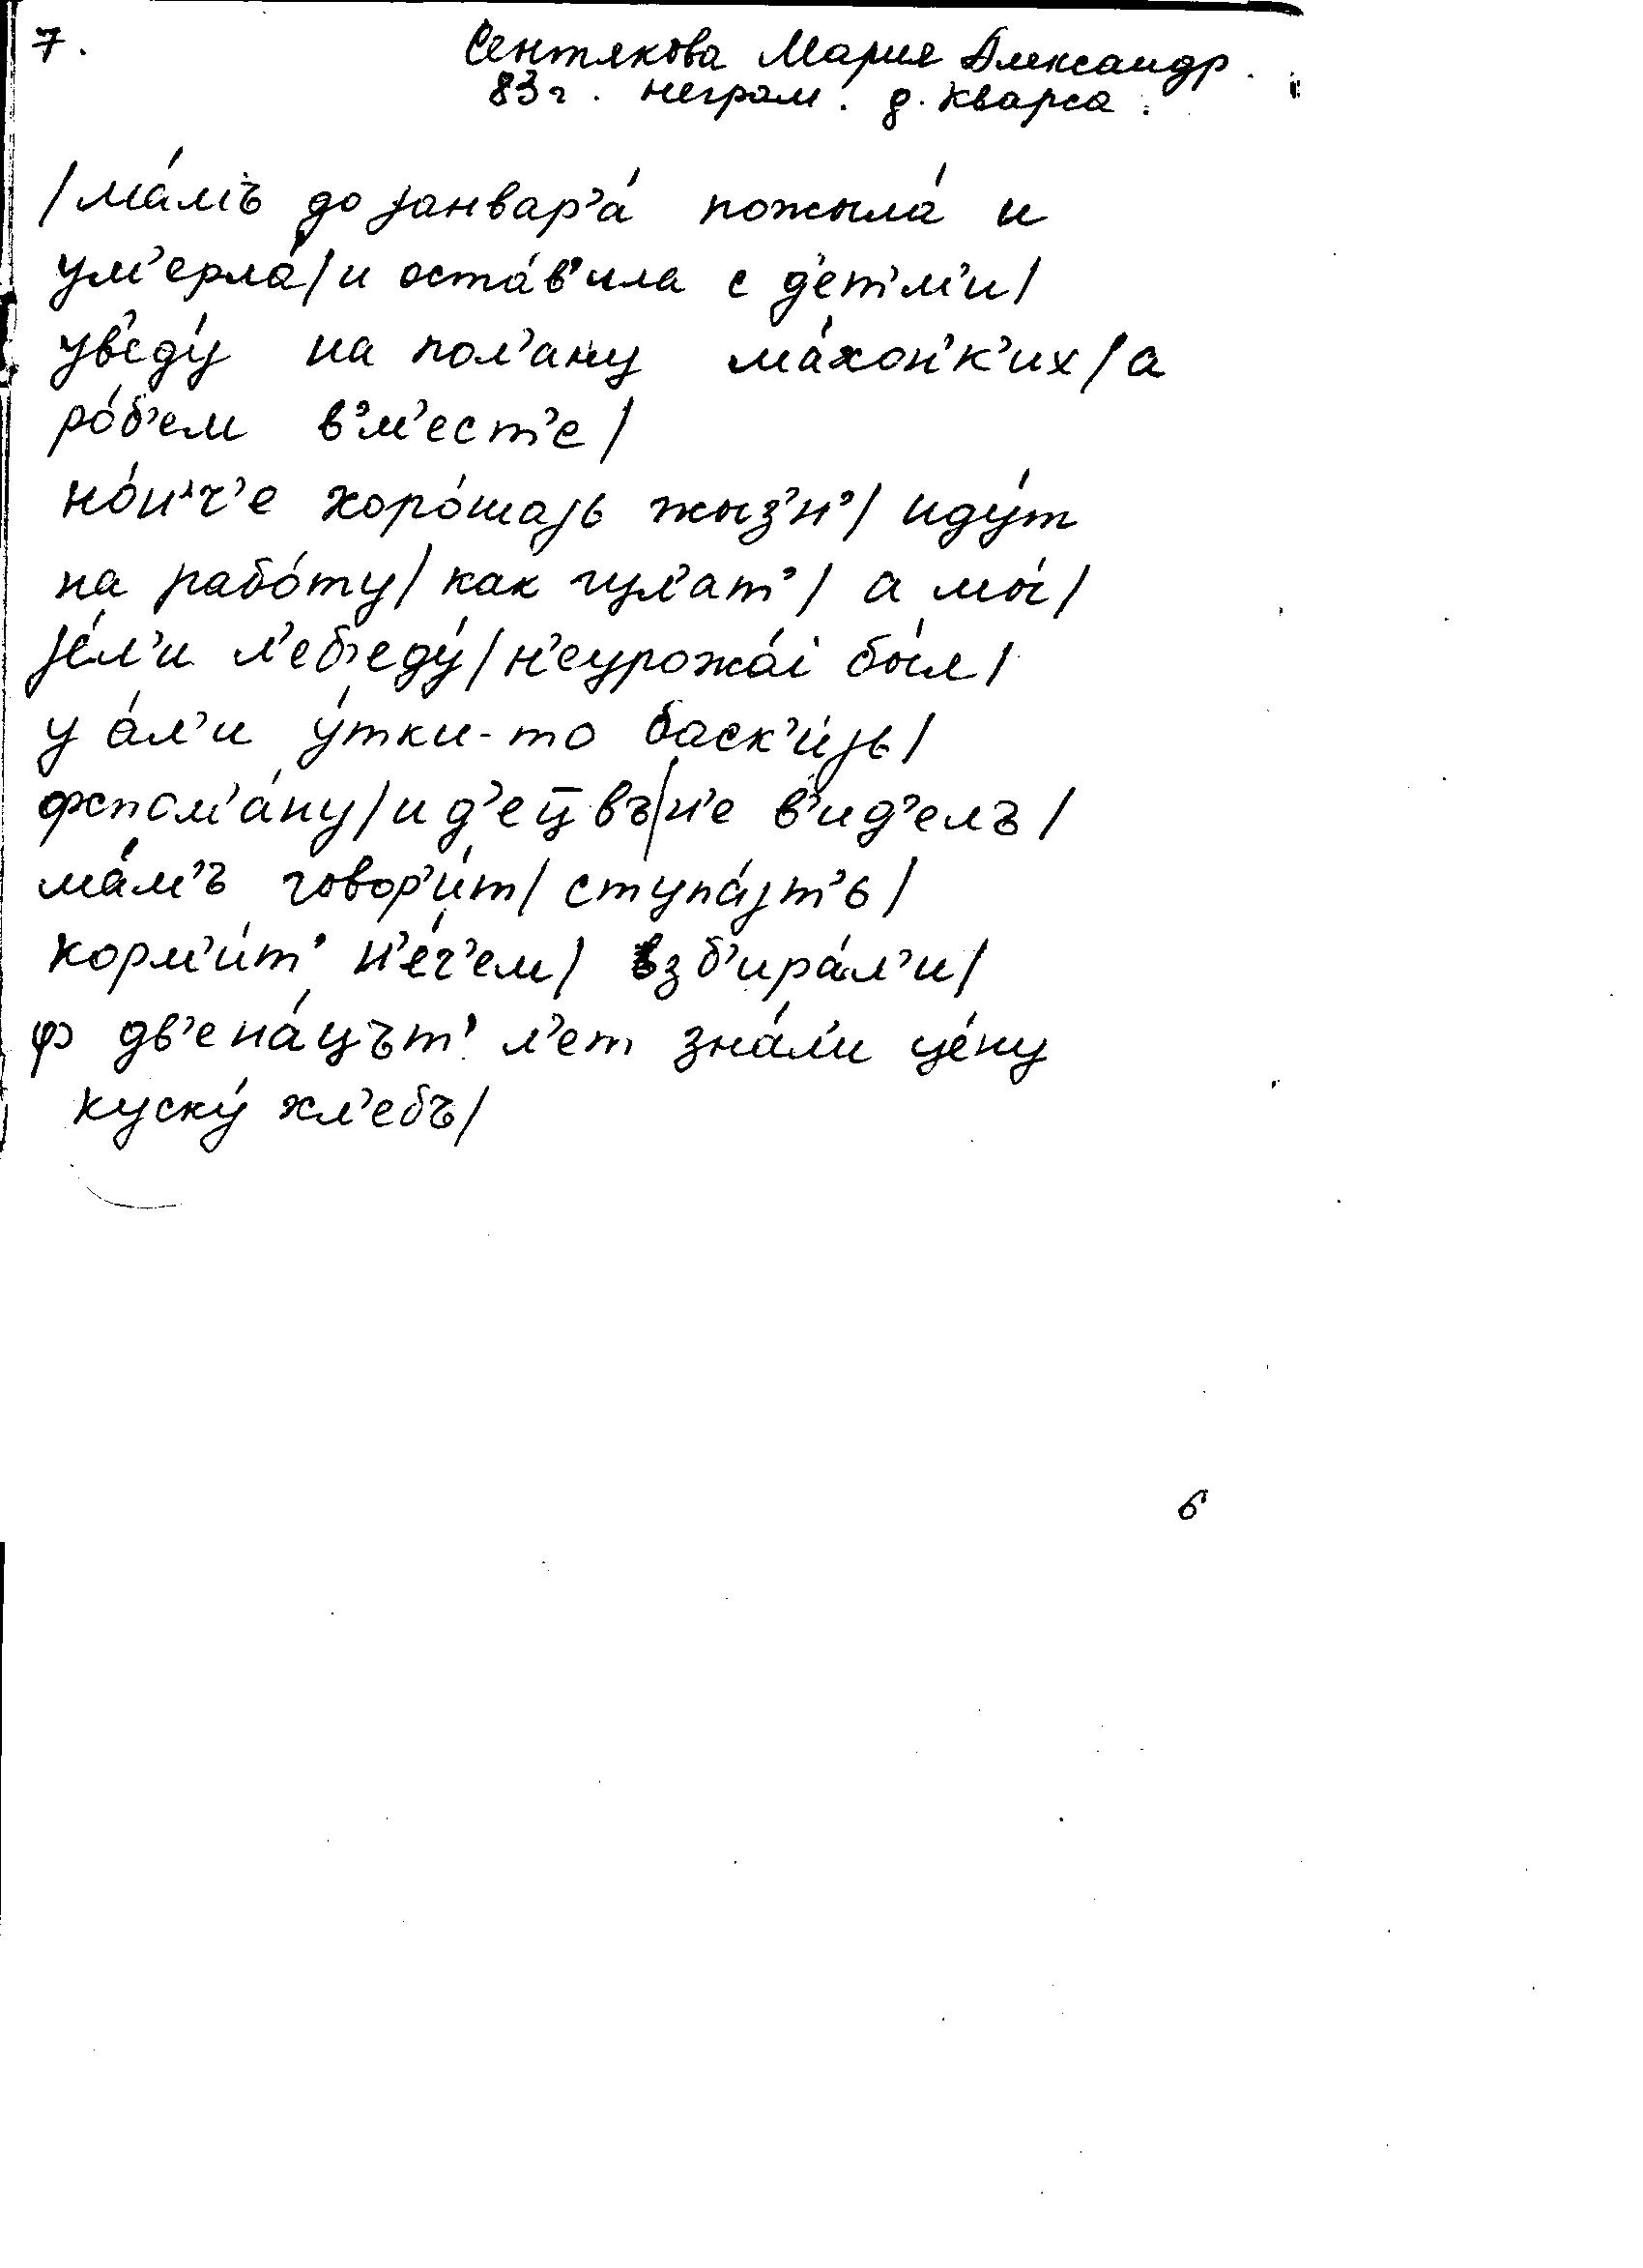 7.
Сентякова Мария Александр.
83 г. неграм. д. Кварса.
/ма́м'ъ до jанвар'а́ пожыла́ и
ум'ерла́/и оста́в'ила с д'ет'м'и/
ув'еду́ на пол'ану ма́хон'к'их/а
ро́б'ем в'м'ест'е/
но́н'ч'е хоро́шаjь жыз'н'/ иду́т
на рабо́ту/ как гул'ат'/ а мы́/
jе́л'и л'еб'еду́/н'еурожа́j бы́л/
у а́л'и у́тки-то баск'и́jь/
фспом'а́ну/и д'ецвъ/н'е в'ид'елъ/
ма́м'ъ говор'и́т/ ступа́jт'ь/
корм'и́т' н'е́ч'ем/ взб'ира́л'и/
ф дв'ена́цът' л'ет зна́л'и це́ну
куску́ хл'ебъ/
6